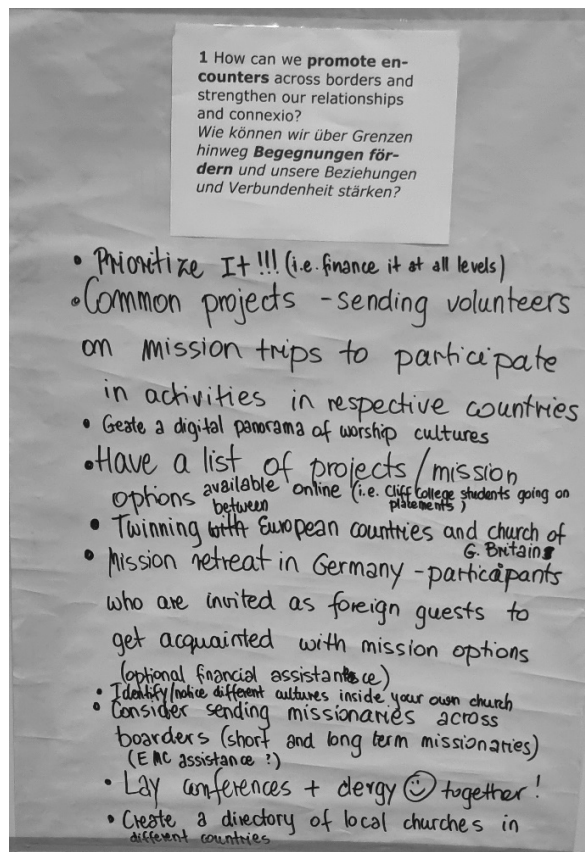 1 How can we promote en-
counters across borders and
strengthen our relationships
and connexio?
Wie können wir über Grenzen
hinweg Begegnungen för-
dern und unsere Beziehungen
und Verbundenheit stärken?
• Prioritize It!!! (i.e. finance it at all levels)
• Common projects - sending volunteers
on mission trips to participate
in activities in respective countries
• Geate a digital panorama of worship cultures
• Have a list of projects/mission
options available online (i.e. Cliff College students going on
placements)
between
• Twinning with European countries and church of
G. Britain
• Mission retreat in Germany - participants
who are invited as foreign guests to
get acquainted with mission options
(optional financial assistance)
• Identify/notice different cultures inside your own church
• Consider sending missionaries across
boarders (short and long term missionaries)
(EMC assistance ?)
• Lay conferences + clergy ☺ together!
• Create a directory of local churches in
different countries